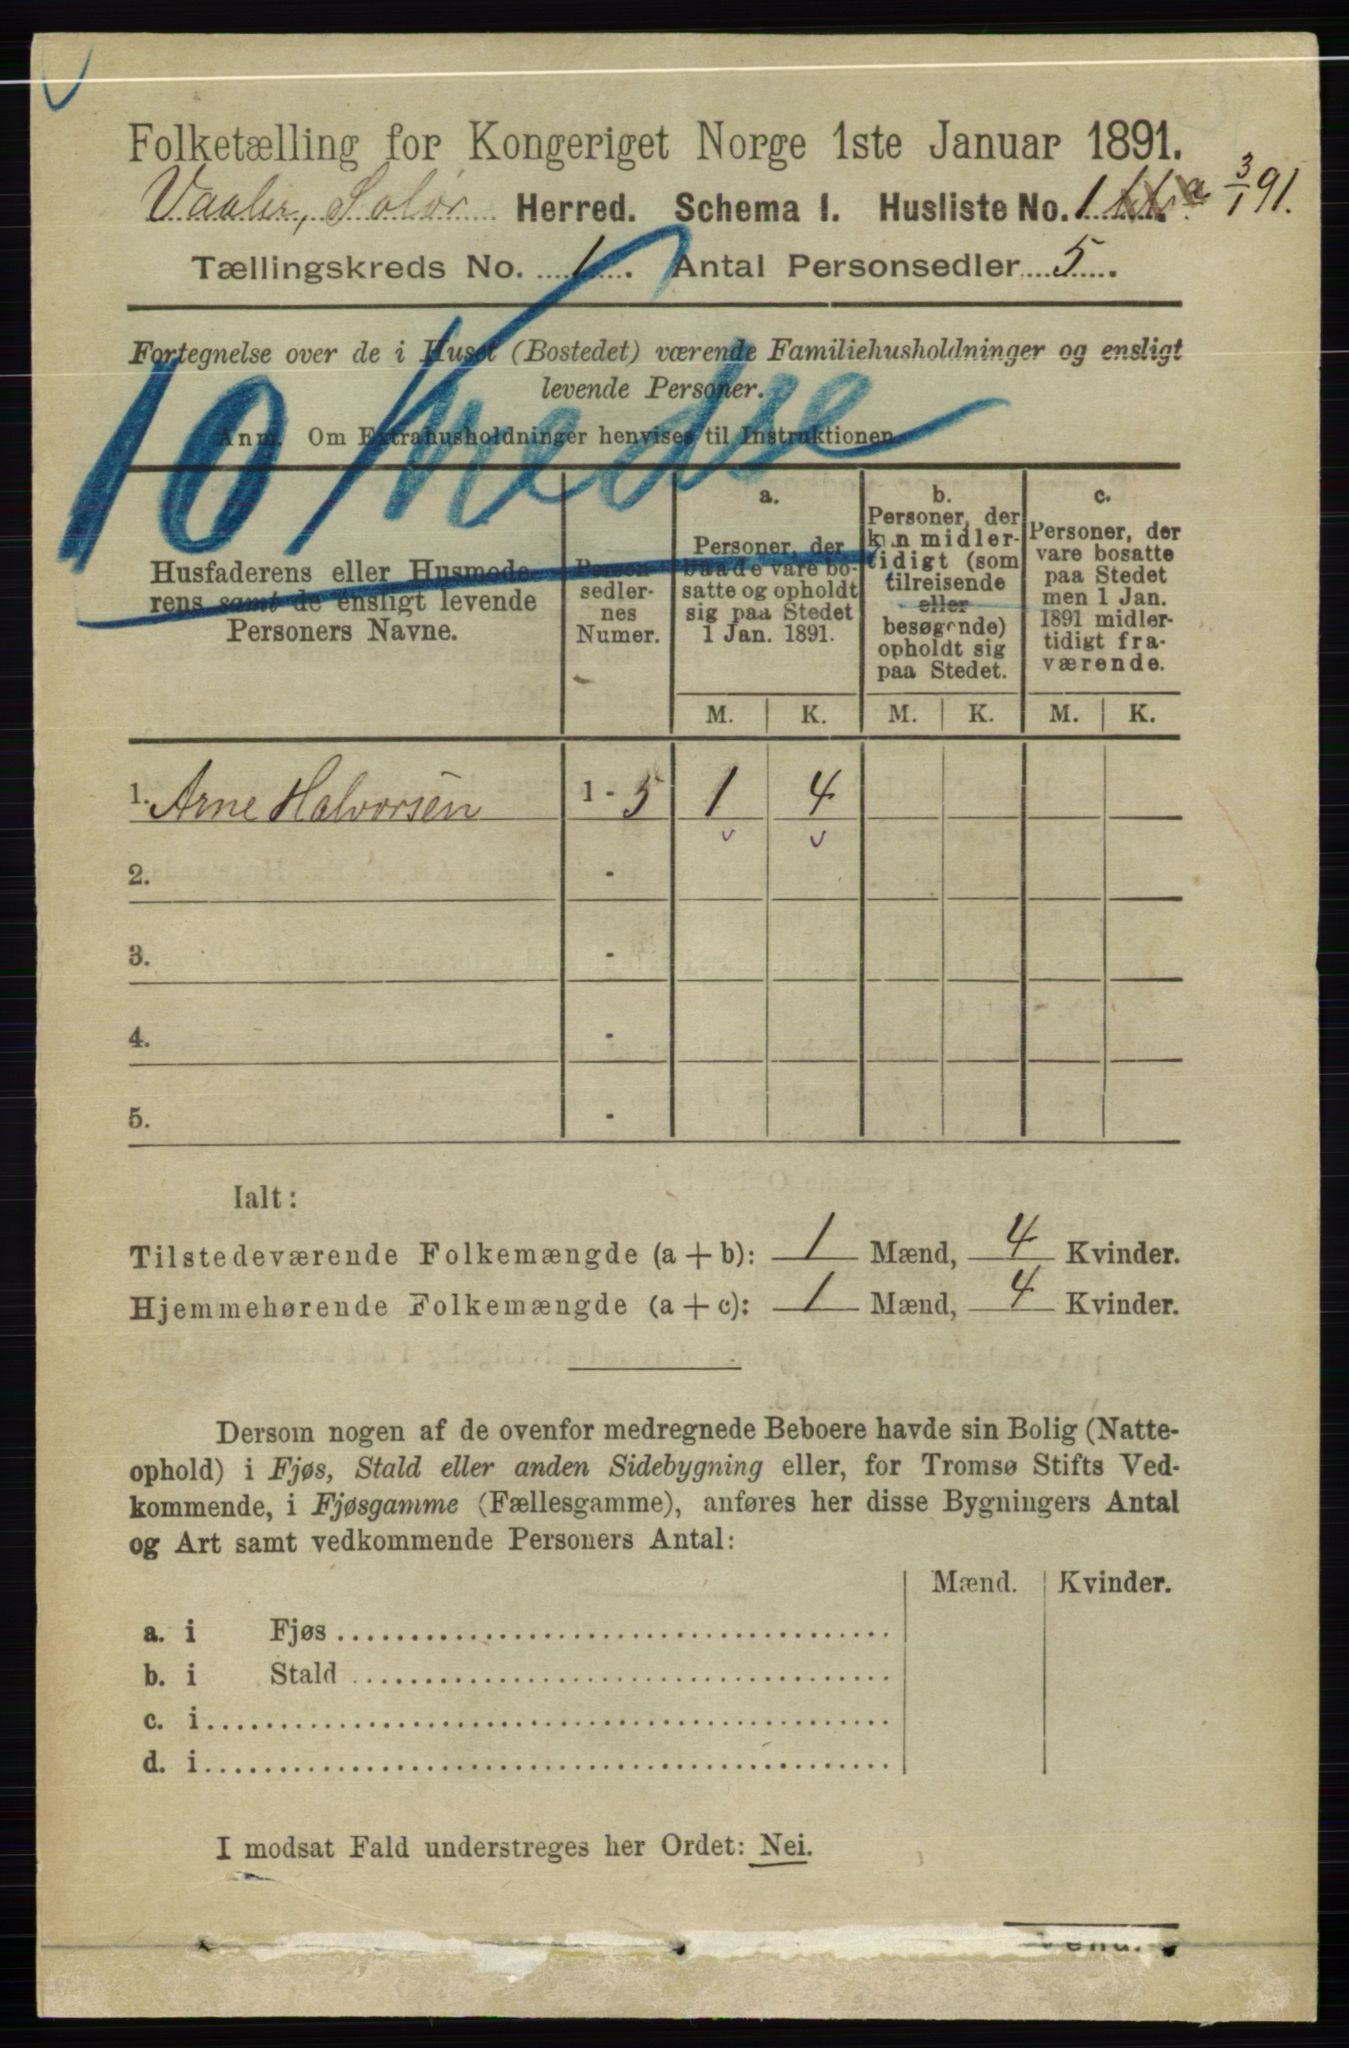 Folketælling for Kongeriget Norge 1ste Januar 1891.
Vaaler, Solør Herred. Schema I. Husliste No. 1 a 3/1 91.
Tællingskreds No. 1. Antal Personsedler 5.
Fortegnelse over de i Huset (Bostedet) værende Familiehusholdninger og ensligt
levende Personer.
10 Kredse
Anm. Om Extrahusholdninger henvises til Instruktionen.
Husfaderens eller Husmode-
rens samt de ensligt levende
Personers Navne.
Person-
sedler-
nes
Numer.
a.
Personer, der
baade vare bo-
satte og opholdt
sig paa Stedet
1 Jan. 1891.
b.
Personer, der
kun midler-
tidigt (som
tilreisende
eller
besøgende)
opholdt sig
paa Stedet.
c.
Personer, der
vare bosatte
paa Stedet
men 1 Jan.
1891 midler-
tidigt fra-
værende.
M. K. M. K. M. K.
1. Arne Halvorsen 1 - 5 1 4
2. -
3. -
4. -
5. -
Ialt:
Tilstedeværende Folkemængde (a + b): 1 Mænd, 4 Kvinder.
Hjemmehørende Folkemængde (a + c): 1 Mænd, 4 Kvinder.
Dersom nogen af de ovenfor medregnede Beboere havde sin Bolig (Natte-
ophold) i Fjøs, Stald eller anden Sidebygning eller, for Tromsø Stifts Ved-
kommende, i Fjøsgamme (Fællesgamme), anføres her disse Bygningers Antal
og Art samt vedkommende Personers Antal:
Mænd. Kvinder.
a. i Fjøs
b. i Stald
c. i
d. i
I modsat Fald understreges her Ordet: Nei.